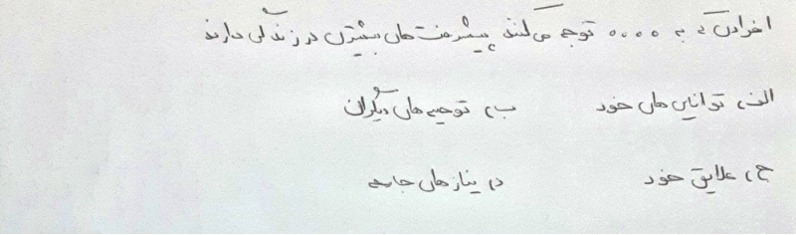 افرادی که به .... توجه می‌کنند پیشرفت‌های بیشتری در زندگی دارند
الف) توانایی‌های خود ب) توصیه‌های دیگران
ج) علایق خود د) نیازهای جامعه